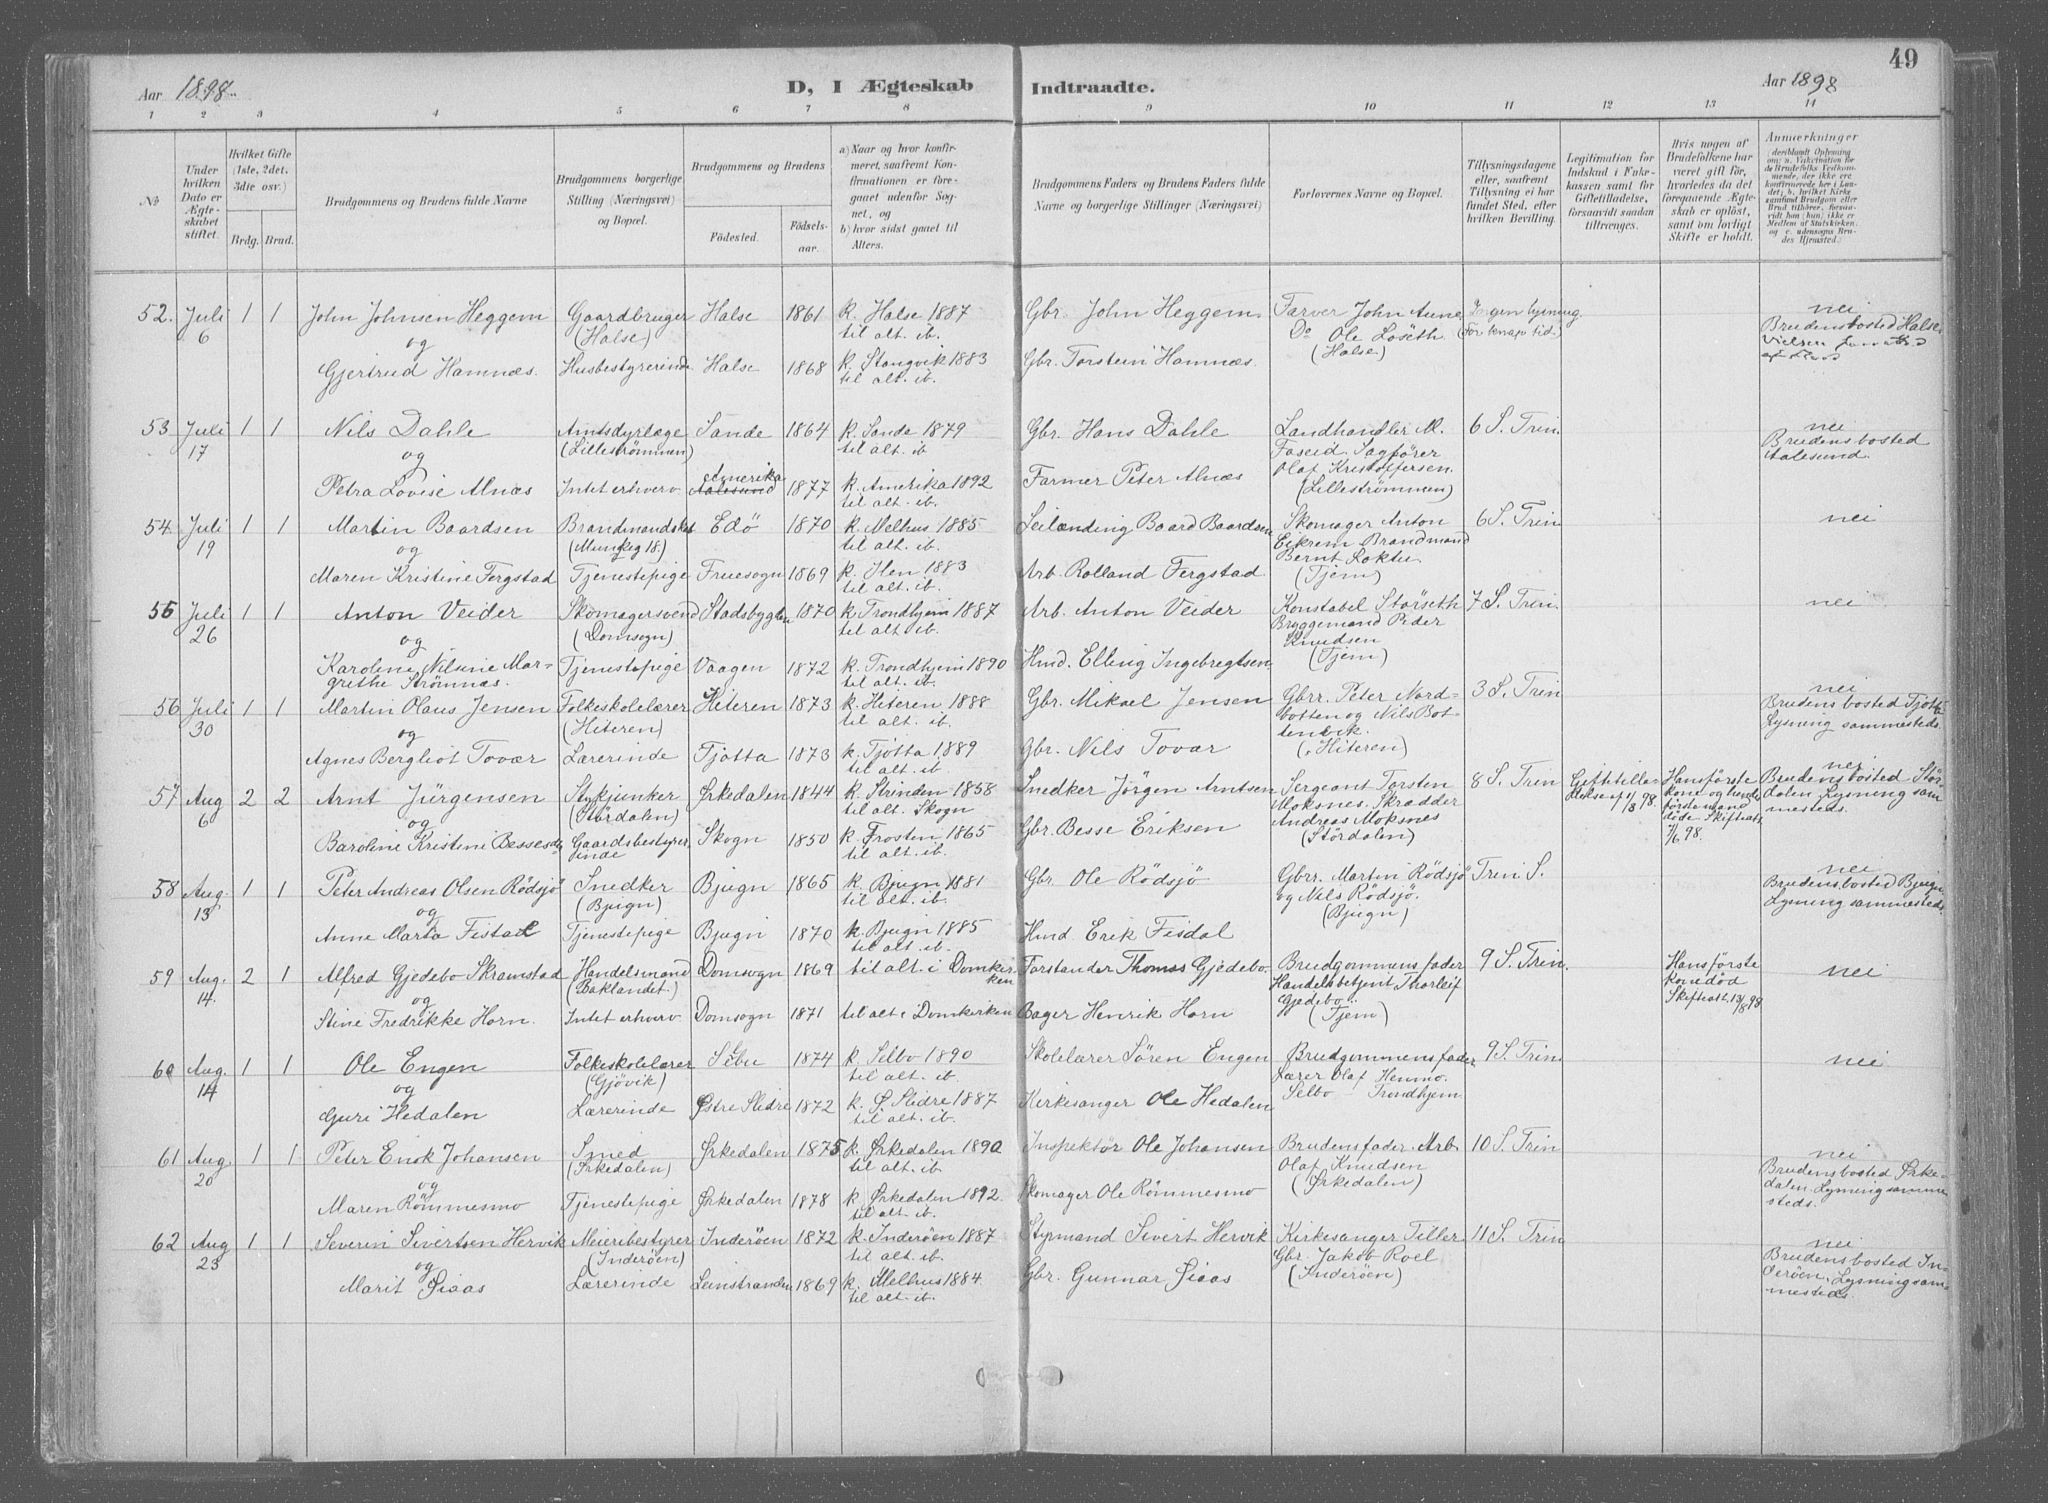 49
Aar 1898.
D, I Ægteskab Indtraadte.
Aar 1898
1 2 3 4 5 6 7 8 9 10 11 12 13 14
No
Under hvilken Dato er Ægteskabet stiftet.
Hvilket Gifte (1ste, 2det, 3die osv.)
Brdg. Brud.
Brudgommens og Brudens fulde Navne
Brudgommens borgerlige Stilling (Næringsvei) og Bopæl.
Brudgommens og Brudens
Födested. Födselsaar.
a) Naar og hvor konfirmeret, saafremt Konfirmationen er foregaaet udenfor Sognet, og
b) hvor sidst gaaet til Alters.
Brudgommens Faders og Brudens Faders fulde Navne og borgerlige Stillinger (Næringsvei)
Forlovernes Navne og Bopæl.
Tillysningsdagene eller, saafremt Tillysning ei har fundet Sted, efter hvilken Bevilling.
Legitimation for Indskud i Enkekassen samt for Giftetilladelse, forsaavidt saadan tiltrænges.
Hvis nogen af Brudefolkene har været gift för, hvorledes da det foregaaende Ægteskab er oplöst, samt om lovligt Skifte er holdt.
Anmærkninger
52. Juli 6 1 1 John Johnsen Heggem Gaardbruger (Halse) Halse 1861 k. Halse 1887 til alt. ib. Gbr. John Heggem Farver John Aune Do Ole Löseth (Halse) Ingen lysning (For knap tid.) nei Brudens bosted Halse
og
Gjertrud Hamnæs. Husbestyrerinde Halse 1868 k. Stangvik 1883 til alt. ib. Gbr. Torstein Hamnæs.
53. Juli 17 1 1 Nils Dahle Amtsdyrlæge (Lilleströmmen) Sande 1864 k. Sande 1879 til alt. ib Gbr. Hans Dahle Landhandler M. Faseid Sagförer Olaf Kristoffersen. (Lilleströmmen) 6 S. Trin. nei Brudens bosted Aalesund.
og
Petra Lovise Alnæs Intet erhverv Amerika Aalesund 1877 k. Amerika 1892 til alt. ib. Farmer Peter Alnæs
54. Juli 19 1 1 Martin Baardsen Brandmandskst (Munkeg 18.) Edö 1870 k. Melhus 1885 til alt. ib. Leilænding Baard Baardsen Skomager Anton Eikrem Brandmand Bernt Loktu (Tjem) 6 S. Trin nei
og
Maren Kristine Fergstad Tjenestepige Fruesogn 1869 k. Hen 1883 til alt. ib. Arb. Rolland Fergstad
55 Juli 26 1 1 Anton Veider Skomagersvend (Domsogn) Stadsbygden 1870 k. Trondhjem 1887 til alt. ib. Arb. Anton Veider Konstabel Störseth Bryggemand Peder Knudsen (Tjem) 7 S. Trin. nei
og
Karoline Nilsine Margrethe Strömnæs. Tjenestepige Vaagen 1872 k. Trondhjem 1890 til alt. ib. Hmd. Elling Ingebregtsen
56 Juli 30 1 1 Martin Olaus Jensen Folkeskolelærer (Hiteren) Hiteren 1873 k. Hiteren 1888 til alt. ib. Gbr. Mikael Jensen Gbrr. Peter Nordbotten og Nils Bottenvik. (Hiteren) 3 S. Trin nei Brudens bosted Tjötta Lysning sammesteds.
og
Agnes Bergliot Tovær Lærerinde Tjötta 1873 k. Tjötta 1889 til alt. ib. Gbr. Nils Tovær
57 Aug 6 2 2 Arnt Jürgensen Stykjunker (Stördalen) Ørkedalen 1844 k. Strinden 1858 til alt. Skogn Snedker Jörgen Arntsen Sergeant Torsten Moksnes. Skrædder Andreas Moksnes (Stördalen) 8 S. Trin Giftetilladelse af 1/8 98. Hans förste kone og hendes förste mand döde Skifteatt. 7/6 98. nei Brudens bosted Stördalen Lysning sammesteds.
og
Baroline Kristine Bessesdr Gaardsbestyrerinde Skogn 1850 k. Frosten 1865 til alt. ib. Gbr. Besse Eriksen
58 Aug. 13 1 1 Peter Andreas Olsen Rödsjö Snedker (Bjugn) Bjugn 1865 k. Bjugn 1881 til alt. ib. Gbr. Ole Rödsjö Gbrr. Martin Rödsjö og Nils Rödsjö. (Bjugn) Trin. S. nei Brudens bosted Bjugn Lysning sammesteds.
og
Anne Marta Fisdal Tjenestepige Bjugn 1870 k. Bjugn 1885 til alt. ib. Hmd. Erik Fisdal
59 Aug. 14. 2 1 Alfred Gjedebo Skramstad Handelsmand (Baklandet.) Domsogn 1869 til alt. i Domkirken Forstander Thomas Gjedebo. Brudgommens fader Handelsbetjent Thorleif Gjedebo. (Tjem) 9 S. Trin. Hans förste kone död Skifteatt. 13/8 98. nei
og
Stine Fredrikke Horn. Intet erhverv Domsogn 1871 til alt i Domkirken Bager Henrik Horn
60 Aug. 14 1 1 Ole Engen Folkeskolelærer (Gjövik) Selbu 1874 k. Selbo 1890 til alt. ib. Skolelærer Sören Engen Brudgommens fader Lærer Olaf Henmo. Selbo Trondhjem. 9 S. Trin nei
og
Guri Hedalen Lærerinde Østre Slidre 1872 k. Ø Slidre 1887 til alt. ib. Kirkesanger Ole Hedalen
61 Aug 20 1 1 Peter Enok Johansen Smed (Ørkedalen) Ørkedalen 1875 k. Ørkedalen 1890 til alt. ib. Inspektör Ole Johansen Brudens fader. Arb. Olaf Knudsen (Ørkedalen) 10 S. Trin nei Brudens bosted Ørkedalen. Lysning sammesteds.
og
Maren Römmesmo Tjenestepige Ørkedalen 1878 k. Ørkedalen 1892. til alt. ib. Skomager Ole Römmesmo
62 Aug 23 1 1 Severin Sivertsen Hervik Meieribestyrer (Inderöen) Inderöen 1872 k. Inderöen 1887 til alt. ib. Styrmand Sivert Hervik Kirkesanger Tiller Gbr. Jakob Roel (Inderöen) 11 S. Trin nei Brudens bosted Inderöen. Lysning sammesteds.
og
Marit Øiaas Lærerinde Leinstranden 1869 k. Melhus 1884. til alt. ib. Gbr. Gunnar Øiaas